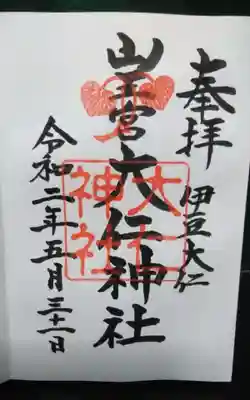 奉拝
伊豆大仁
山王宮大仁神社
大仁神社
令和二年五月三十一日